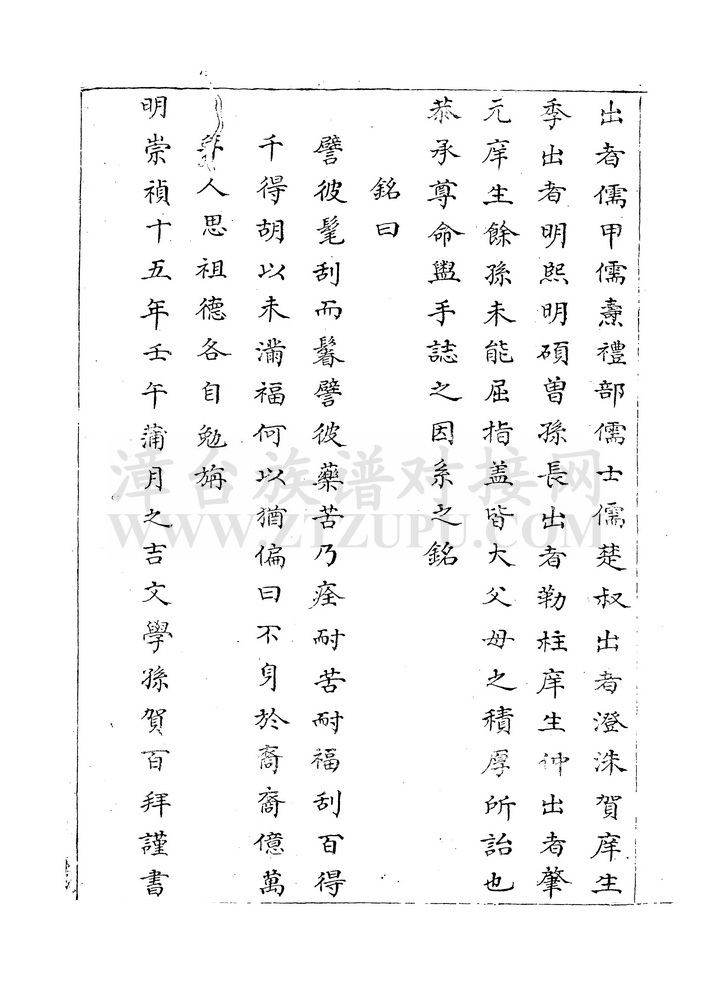 出者儒甲儒燾禮部儒士儒楚叔出者澄洙賀庠生
季出者明熙明碩曾孫長出者勒柱庠生仲出者肇
元庠生餘孫未能屈指蓋皆大父母之積厚所詒也
恭承尊命盥手誌之因系之銘
銘曰
譬彼髦刮而鬈譬彼藥苦乃痊耐苦耐福刮百得
千得胡以未滿福何以猶偏曰不身於裔裔億萬
人思祖德各自勉旃
明崇禎十五年壬午蒲月之吉文學孫賀百拜謹書
漳台族谱对接网
WWW.ZTZUPU.COM